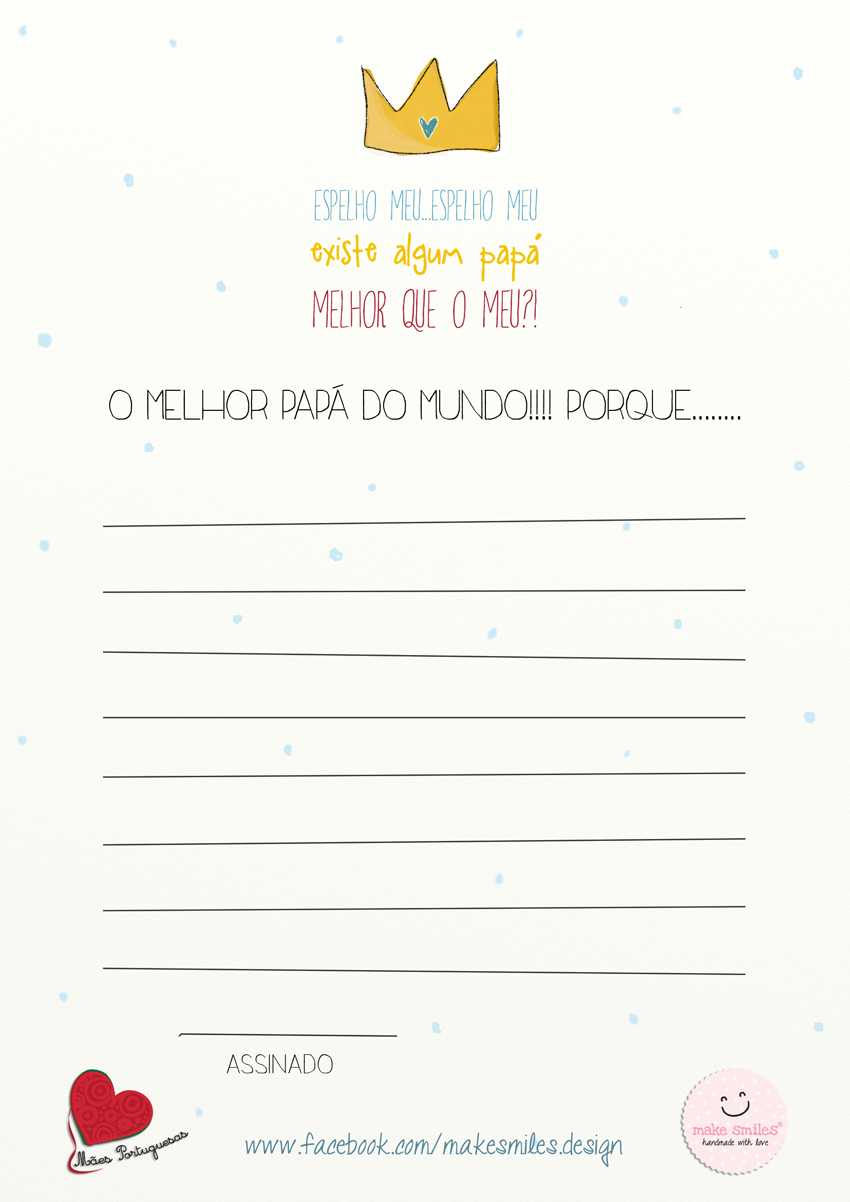 ESPELHO MEU...ESPELHO MEU
existe algum papá
MELHOR QUE O MEU?!
O MELHOR PAPÁ DO MUNDO!!!! PORQUE........
ASSINADO
Mães Portuguesas
www.facebook.com/makesmiles.design
make smiles®
handmade with love